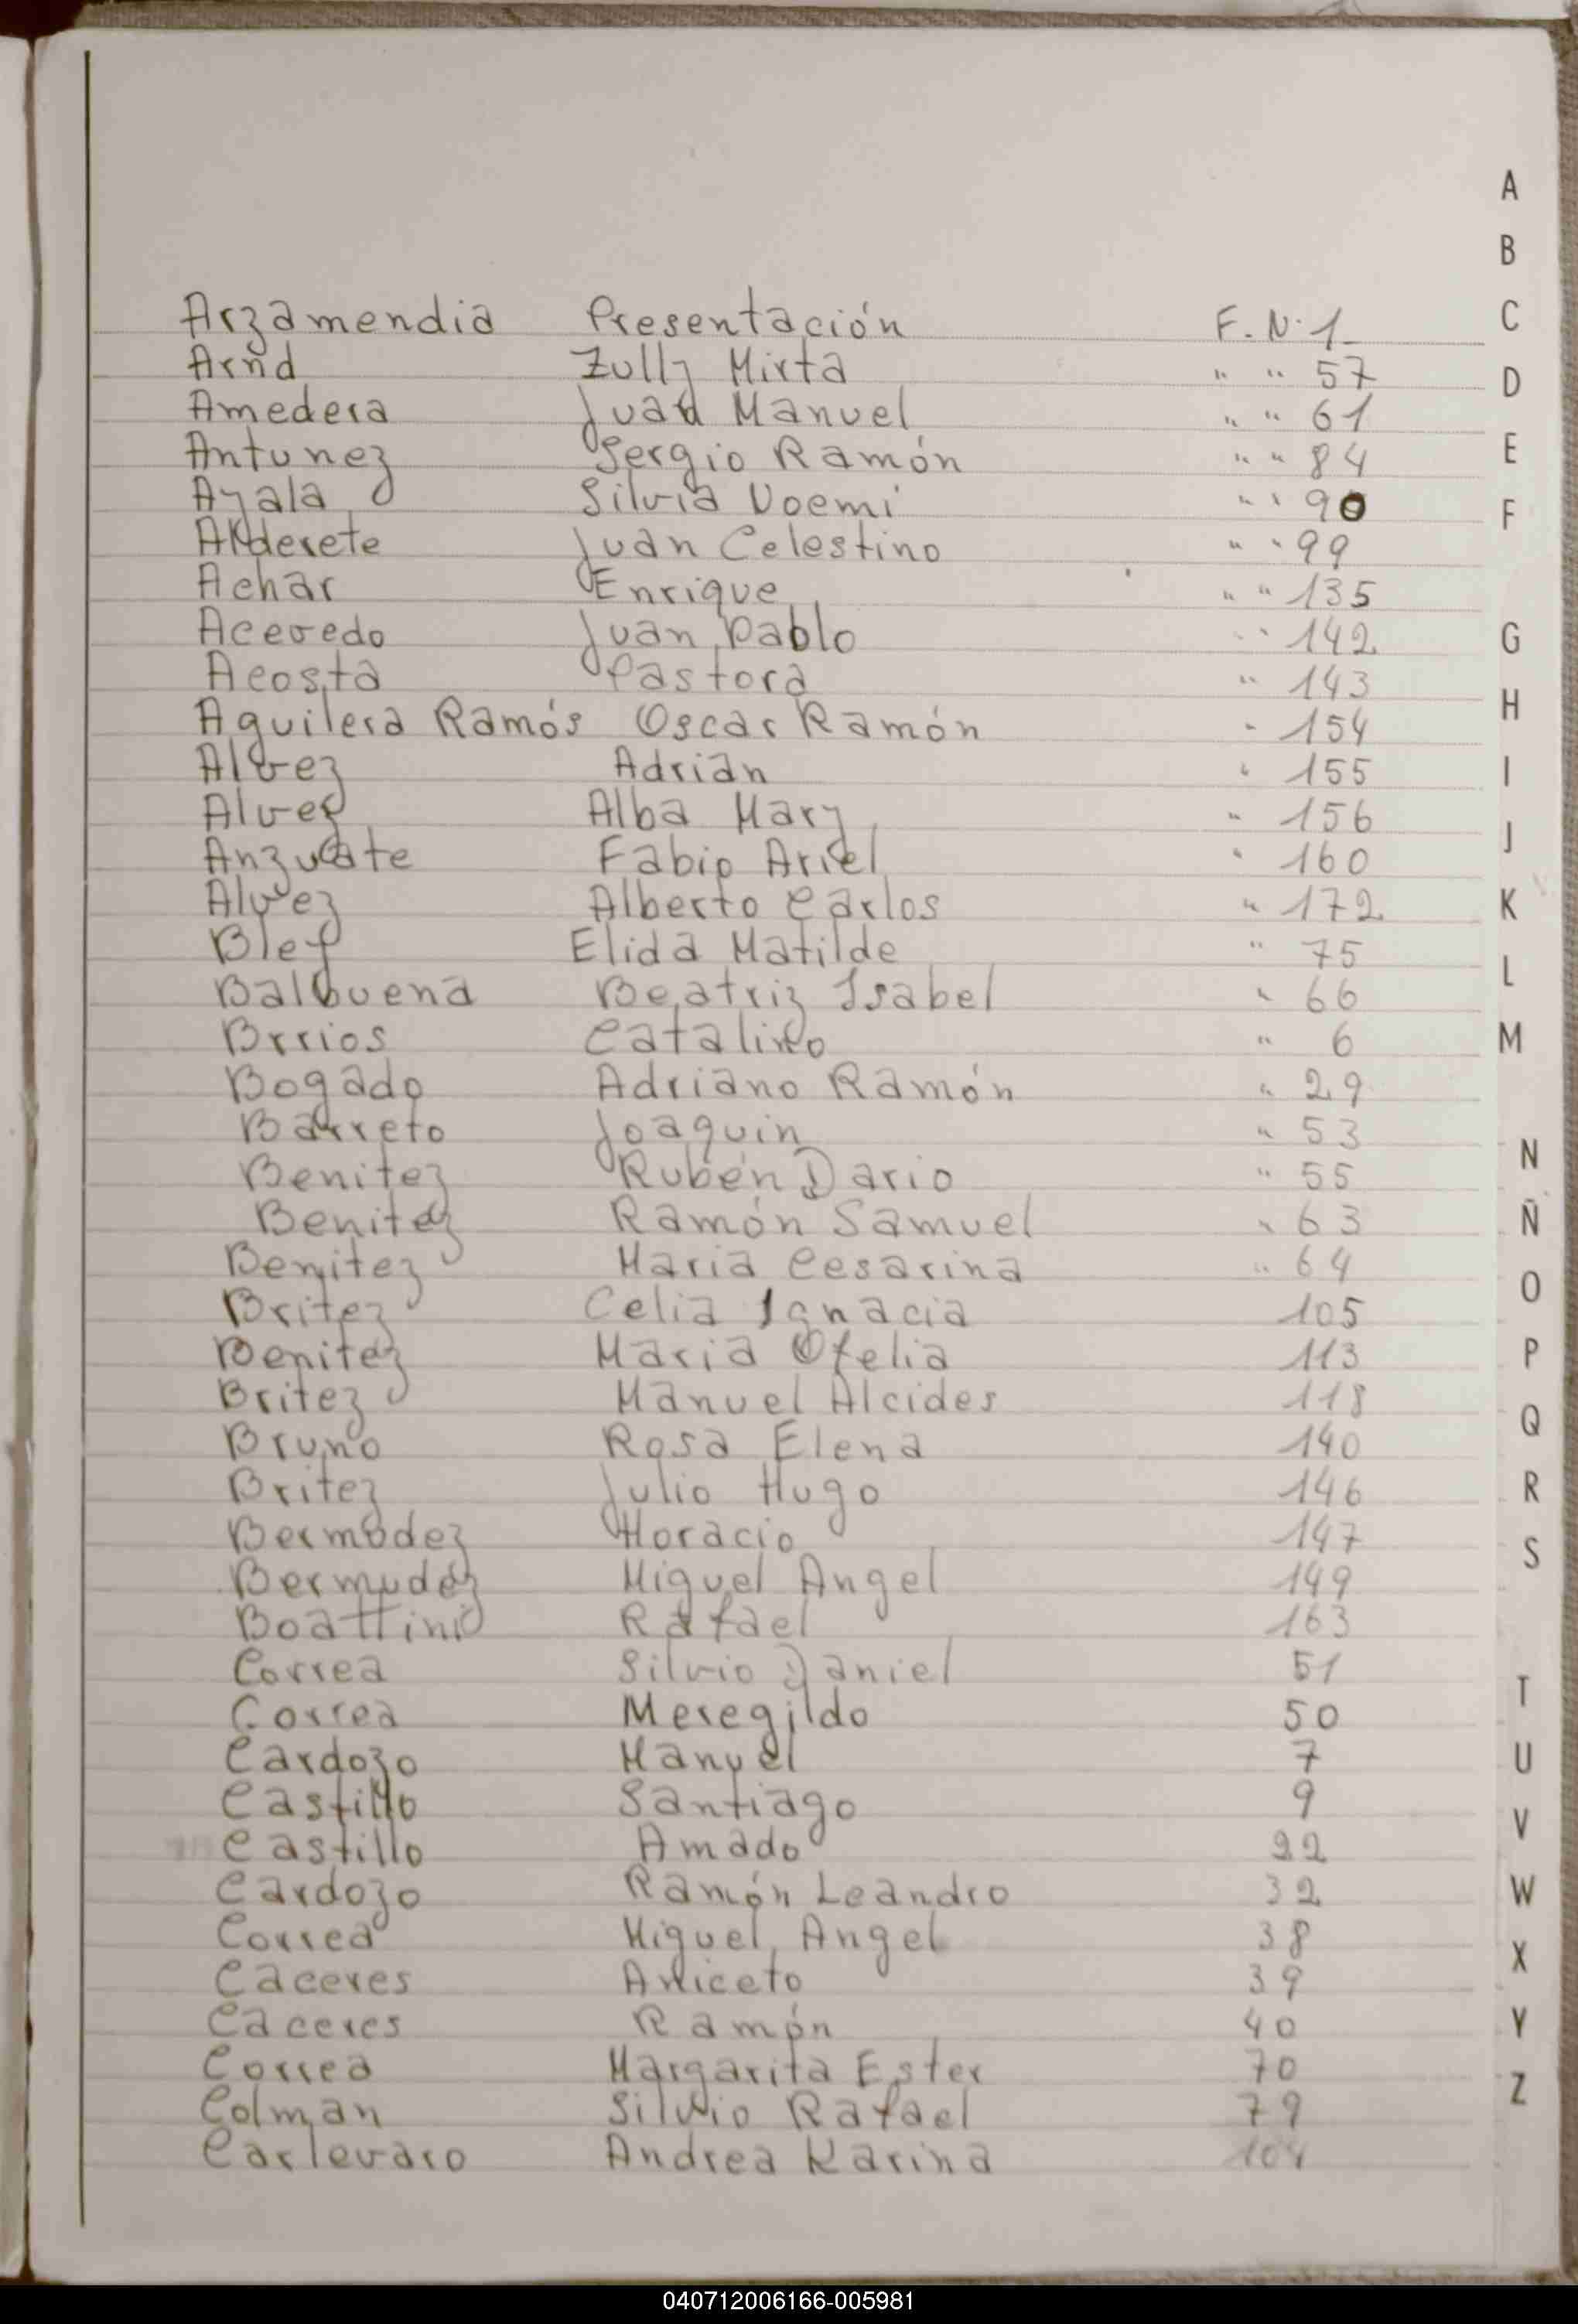 Arzamendia Presentación F. N. 1
Arnd Zully Mirta " " 57
Amedera Juan Manuel " " 61
Antunez Sergio Ramón " " 84
Ayala Silvia Noemi " " 90
Alderete Juan Celestino " " 99
Achar Enrique " " 135
Acevedo Juan Pablo " " 142
Acosta Pastora " 143
Aguilera Ramós Oscar Ramón " 154
Alvez Adrián " 155
Alvez Alba Mary " 156
Anzuate Fabio Ariel " 160
Alvez Alberto Carlos " 172
Blef Elida Matilde " 75
Balbuena Beatriz Isabel " 66
Brrios Catalino " 6
Bogado Adriano Ramón " 29
Barreto Joaquin " 53
Benitez Rubén Dario " 55
Benitez Ramón Samuel " 63
Benitez Maria Cesarina " 64
Britez Celia Ignacia 105
Benitez Maria Ofelia 113
Britez Manuel Alcides 118
Bruno Rosa Elena 140
Britez Julio Hugo 146
Bermudez Horacio 147
Bermudez Miguel Angel 149
Boattini Rafael 163
Correa Silvio Daniel 51
Correa Meregildo 50
Cardozo Manuel 7
Castillo Santiago 9
Castillo Amado 22
Cardozo Ramón Leandro 32
Correa Miguel Angel 38
Caceres Aniceto 39
Caceres Ramón 40
Correa Margarita Ester 70
Colman Silvio Rafael 79
Carlevaro Andrea Karina 104
A
B
C
D
E
F
G
H
I
J
K
L
M
N
Ñ
O
P
Q
R
S
T
U
V
W
X
Y
Z
040712006166-005981